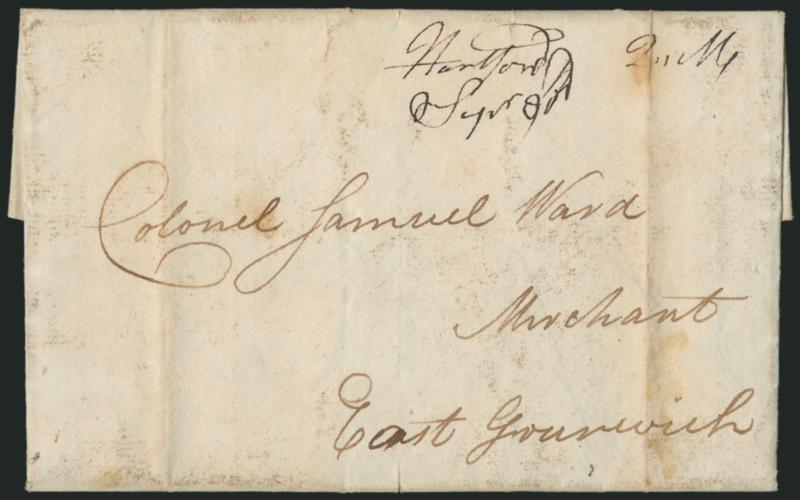 Hartford
Sepr 8th
Colonel Samuel Ward
Merchant
East Greenwich